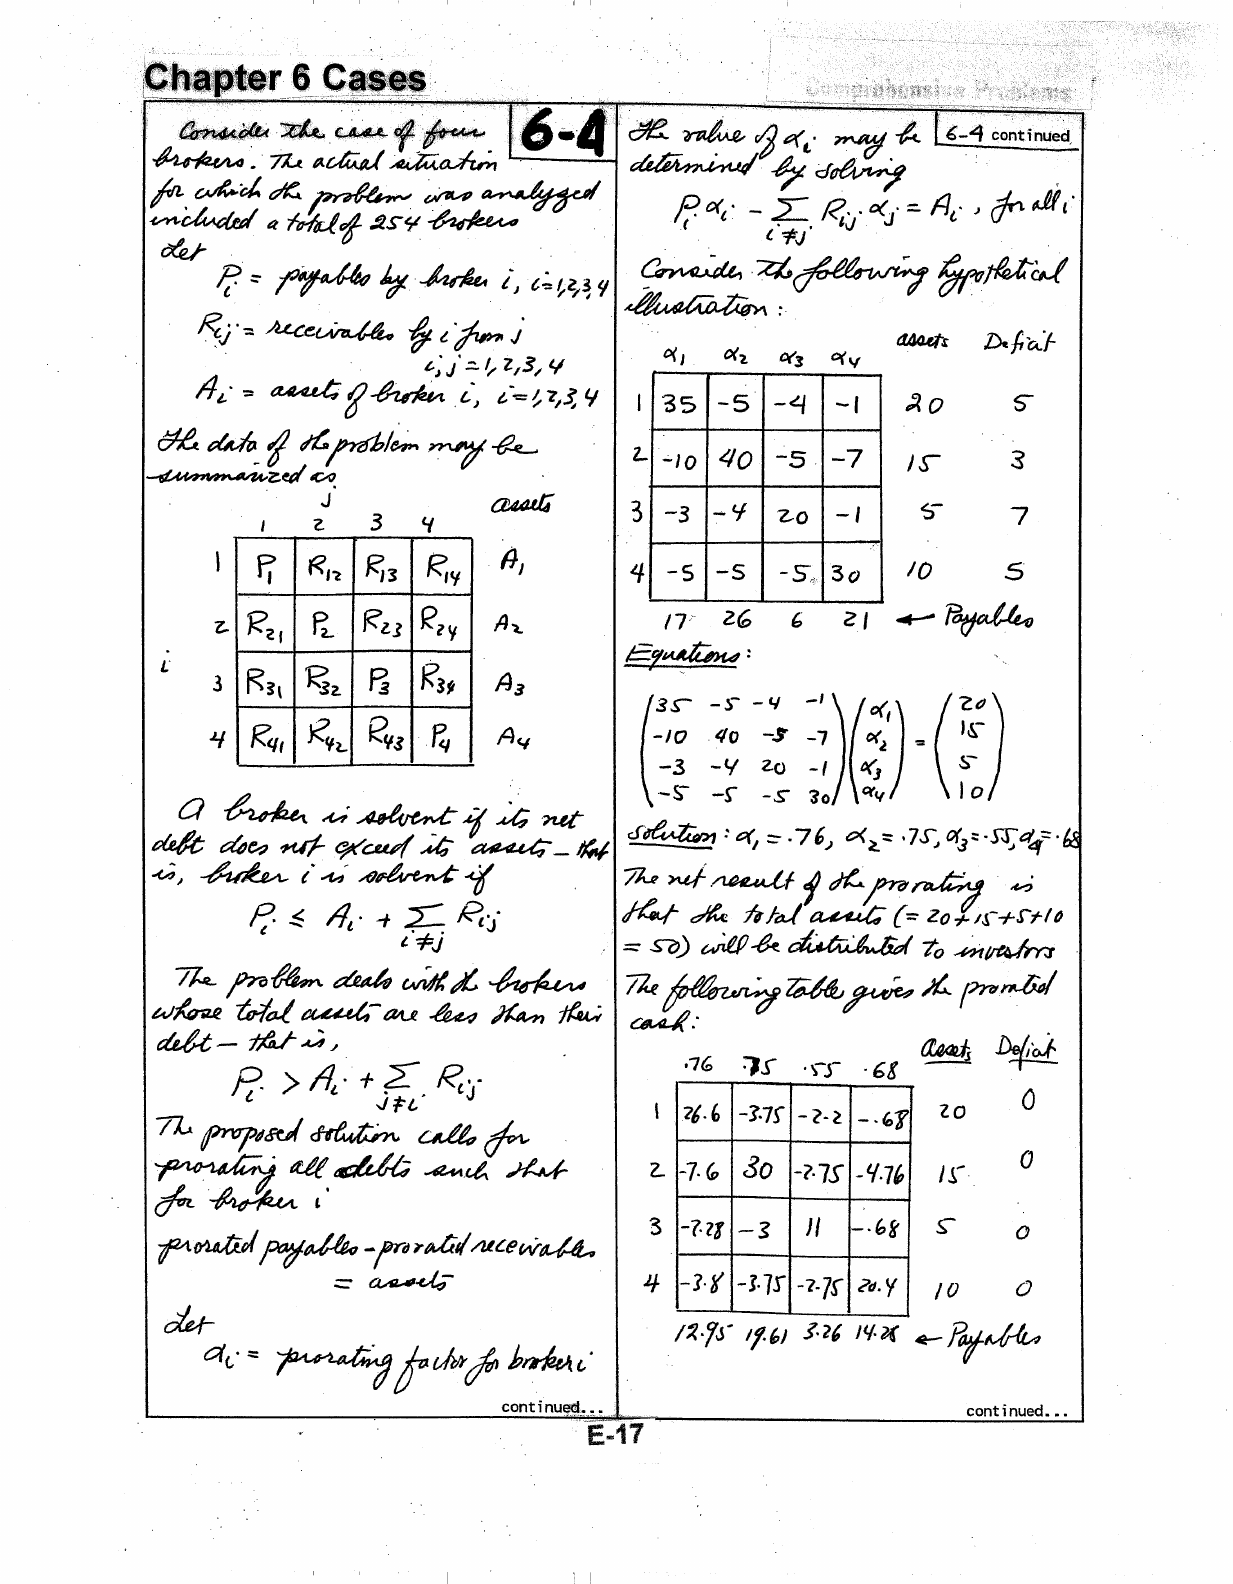 Chapter 6 Cases
Comprehensive Problems
6-4
Consider the case of four
brokers. The actual situation
for which the problem was analyzed
included a total of 254 brokers
Let
Pi = payables by broker i, i=1,2,3,4
Rij = receivables by i from j
i,j = 1,2,3,4
Ai = assets of broker i, i=1,2,3,4
The data of the problem may be
summarized as
j assets
1 2 3 4
1 P1 R12 R13 R14 A1
2 R21 P2 R23 R24 A2
i
3 R31 R32 P3 R34 A3
4 R41 R42 R43 P4 A4
A broker is solvent if its net
debt does not exceed its assets — that
is, broker i is solvent if
Pi ≤ Ai + Σ Rij
i≠j
The problem deals with the brokers
whose total assets are less than their
debt — that is,
Pi > Ai + Σ Rij
j≠i
The proposed solution calls for
prorating all debts such that
for broker i
prorated payables - prorated receivables
= assets
Let
αi = prorating factor for broker i
continued...
6-4 continued
The value of αi may be
determined by solving
Pi αi - Σ Rij αj = Ai, for all i
i≠j
Consider the following hypothetical
illustration:
α1 α2 α3 α4 assets Deficit
1 35 -5 -4 -1 20 5
2 -10 40 -5 -7 15 3
3 -3 -4 20 -1 5 7
4 -5 -5 -5 30 10 5
17 26 6 21 ← Payables
Equations:
35 -5 -4 -1 α1 20
-10 40 -5 -7 α2 = 15
-3 -4 20 -1 α3 5
-5 -5 -5 30 α4 10
solution: α1 = .76, α2 = .75, α3 = .55, α4 = .68
The net result of the prorating is
that the total assets (= 20+15+5+10
= 50) will be distributed to investors
The following table gives the prorated
cash:
.76 .75 .55 .68 assets Deficit
1 26.6 -3.75 -2.2 -.68 20 0
2 -7.6 30 -2.75 -4.76 15 0
3 -2.28 -3 11 -.68 5 0
4 -3.8 -3.75 -2.75 20.4 10 0
12.95 19.61 3.26 14.28 ← Payables
continued...
E-17